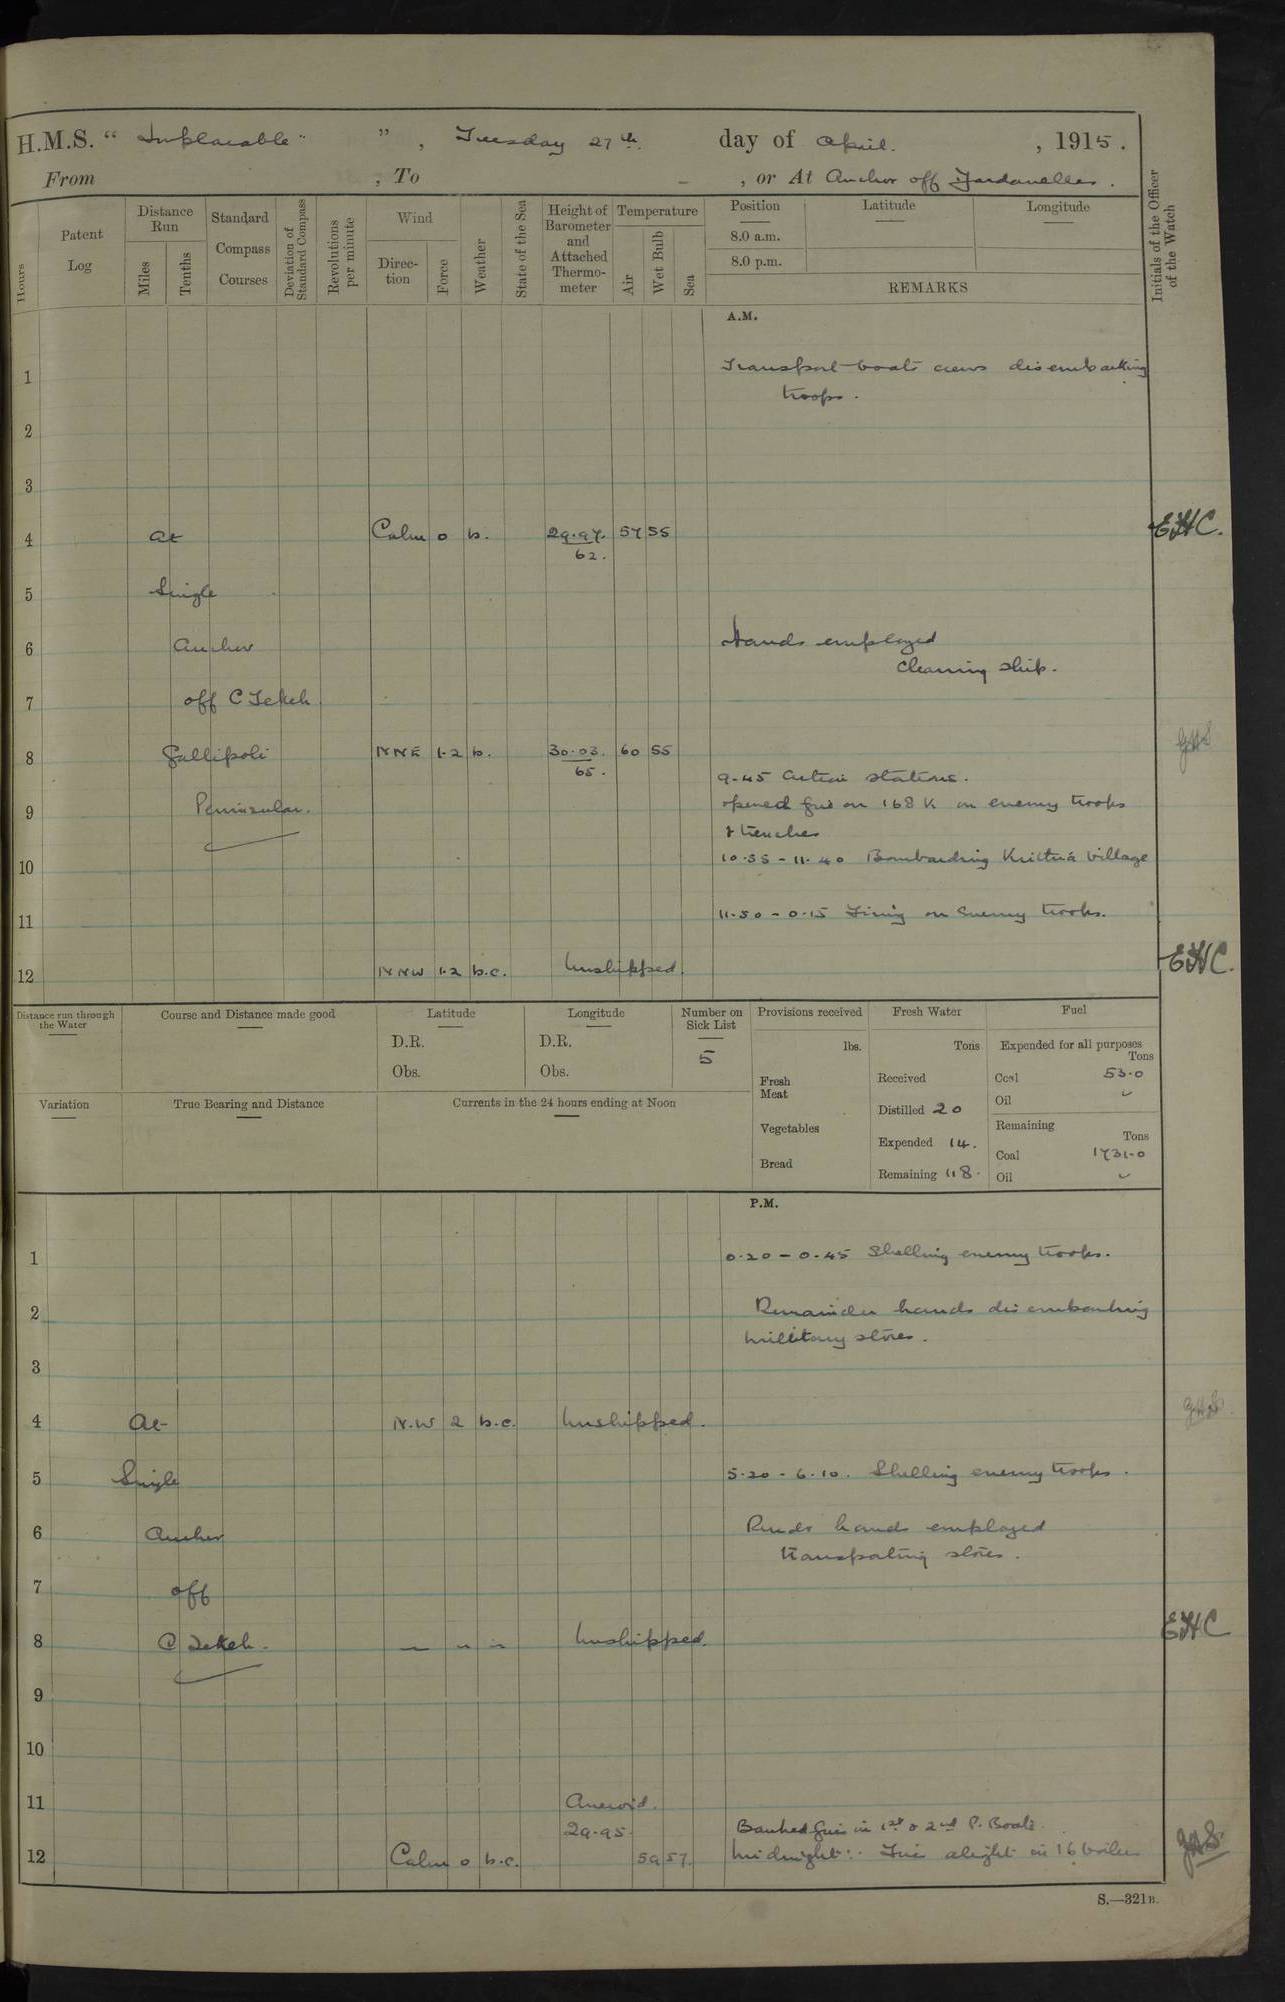 H.M.S. “ Implacable ” , Tuesday 27th day of April , 1915.
From , To , or At Anchor off Dardanelles.
Hours
Patent Log
Distance Run
Miles
Tenths
Standard Compass Courses
Deviation of Standard Compass
Revolutions per minute
Wind
Direction
Force
Weather
State of the Sea
Height of Barometer and Attached Thermometer
Temperature
Air
Wet Bulb
Sea
Position
Latitude
Longitude
8.0 a.m.
8.0 p.m.
REMARKS
Initials of the Officer of the Watch
A.M.
1 Transport boats crews disembarking
troops.
2
3
4 At Calm 0 b. 29.97. 57 55 EHC.
62.
5 Single
6 Anchor Hands employed
cleaning ship.
7 off C Tekeh
8 Gallipoli NNE 1.2 b. 30.03. 60 55
65.
9.45 Action stations.
9 Peninsular. opened fire on 168 K on enemy troops
& trenches
10 10.55 - 11.40 Bombarding Krithia Village
11 11.50 - 0.15 Firing on Enemy troops.
12 NNW 1.2 b.c. Unshipped. EHC.
Distance run through the Water
Course and Distance made good
Latitude
D.R.
Obs.
Longitude
D.R.
Obs.
Number on Sick List
5
Provisions received
lbs.
Fresh Meat
Vegetables
Bread
Fresh Water
Tons
Received
Distilled 20
Expended 14.
Remaining 118.
Fuel
Expended for all purposes
Tons
Coal 53.0
Oil
Remaining
Tons
Coal 1731.0
Oil
Variation
True Bearing and Distance
Currents in the 24 hours ending at Noon
P.M.
1 0.20 - 0.45 Shelling enemy troops.
2 Remainder hands disembarking
military stores.
3
4 At N.W 2 b.c. Unshipped.
5 Single 5.20 - 6.10. Shelling enemy troops.
6 Anchor hands employed
transporting stores.
7 off
8 C Tekeh. Unshipped. EHC
9
10
11 Aneroid.
29.95. Banked fires in 1st & 2nd P. Boats.
12 Calm 0 b.c. 59 57. Midnight:- Fires alight in 16 boilers
S.—321B.